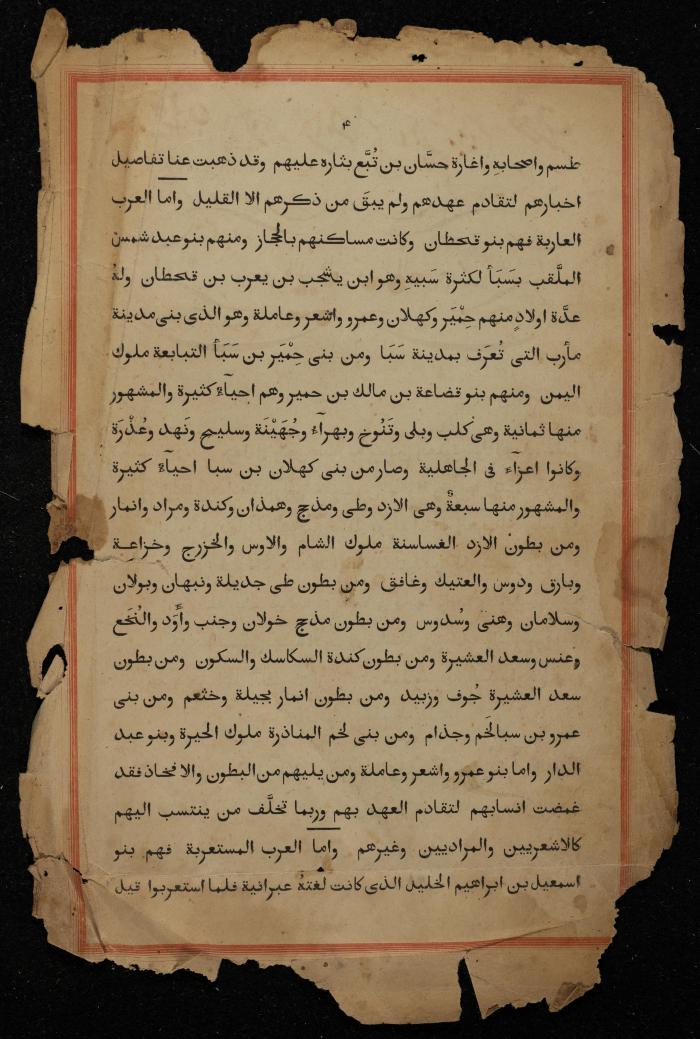 ٤
طسم واصحابهِ واغارة حسَّان بن تُبَّع بثاره عليهم وقد ذهبت عنا تفاصيل
اخبارهم لتقادم عهدهم ولم يبقَ من ذكرهم الا القليل واما العرب
العاربة فهم بنو قحطان وكانت مساكنهم بالحجاز ومنهم بنو عبد شمس
الملَّقب بسَبَأ لكثرة سَبيهِ وهو ابن يشجب بن يعرب بن قحطان ولهُ
عدَّة اولادٍ منهم حِمْيَر وكهلان وعمرو واشعر وعاملة وهو الذى بنى مدينة
مأرب التى تُعرَف بمدينة سَبَا ومن بنى حِمْيَر بن سَبَأ التبابعة ملوك
اليمن ومنهم بنو قضاعة بن مالك بن حمير وهم احيآءٌ كثيرة والمشهور
منها ثمانية وهى كلب وبلى وتَنُوخ وبهرآء وجُهَيْنَة وسليح ونَهد وعُذْرَة
وكانوا اعزآء فى الجاهلية وصار من بنى كهلان بن سبا احيآءٌ كثيرة
والمشهور منها سبعةٌ وهى الازد وطى ومذحج وهمذان وكندة ومراد وانمار
ومن بطون الازد الغساسنة ملوك الشام والاوس والخزرج وخزاعة
وبارق ودوس والعتيك وغافق ومن بطون طى جديلة ونبهان وبولان
وسلامان وهنى وسُدوس ومن بطون مذحج خولان وجنب وأَوَد والنُخَع
وعنس وسعد العشيرة ومن بطون كندة السكاسك والسكون ومن بطون
سعد العشيرة جُوف وزبيد ومن بطون انمار بجيلة وخثعم ومن بنى
عمرو بن سبا لخَم وجذام ومن بنى لخم المناذرة ملوك الحيرة وبنو عبد
الدار واما بنو عمرو واشعر وعاملة ومن يليهم من البطون والافخاذ فقد
غمضت انسابهم لتقادم العهد بهم وربما تخلَّف من ينتسب اليهم
كالاشعريين والمراديين وغيرهم واما العرب المستعربة فهم بنو
اسمعيل بن ابراهيم الخليل الذى كانت لغتهُ عبرانية فلما استعربوا قيل